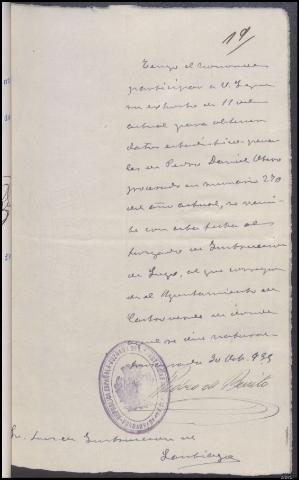 19
Tengo el honor de
participar a V. S. que
su exhorto de 11 del
actual para obtener
datos estadísticos pena
les de Pedro Daniel Otero
procesado en sumario 270
del año actual, se remi
te con esta fecha al
Juzgado de Instrucción
de Lugo, al que correspon
de el Ayuntamiento de
Castroverde en donde
aquel se dice natural
20 Obre. 935
Pedro de Benito
Sr. Juez de Instrucción de
Santiago